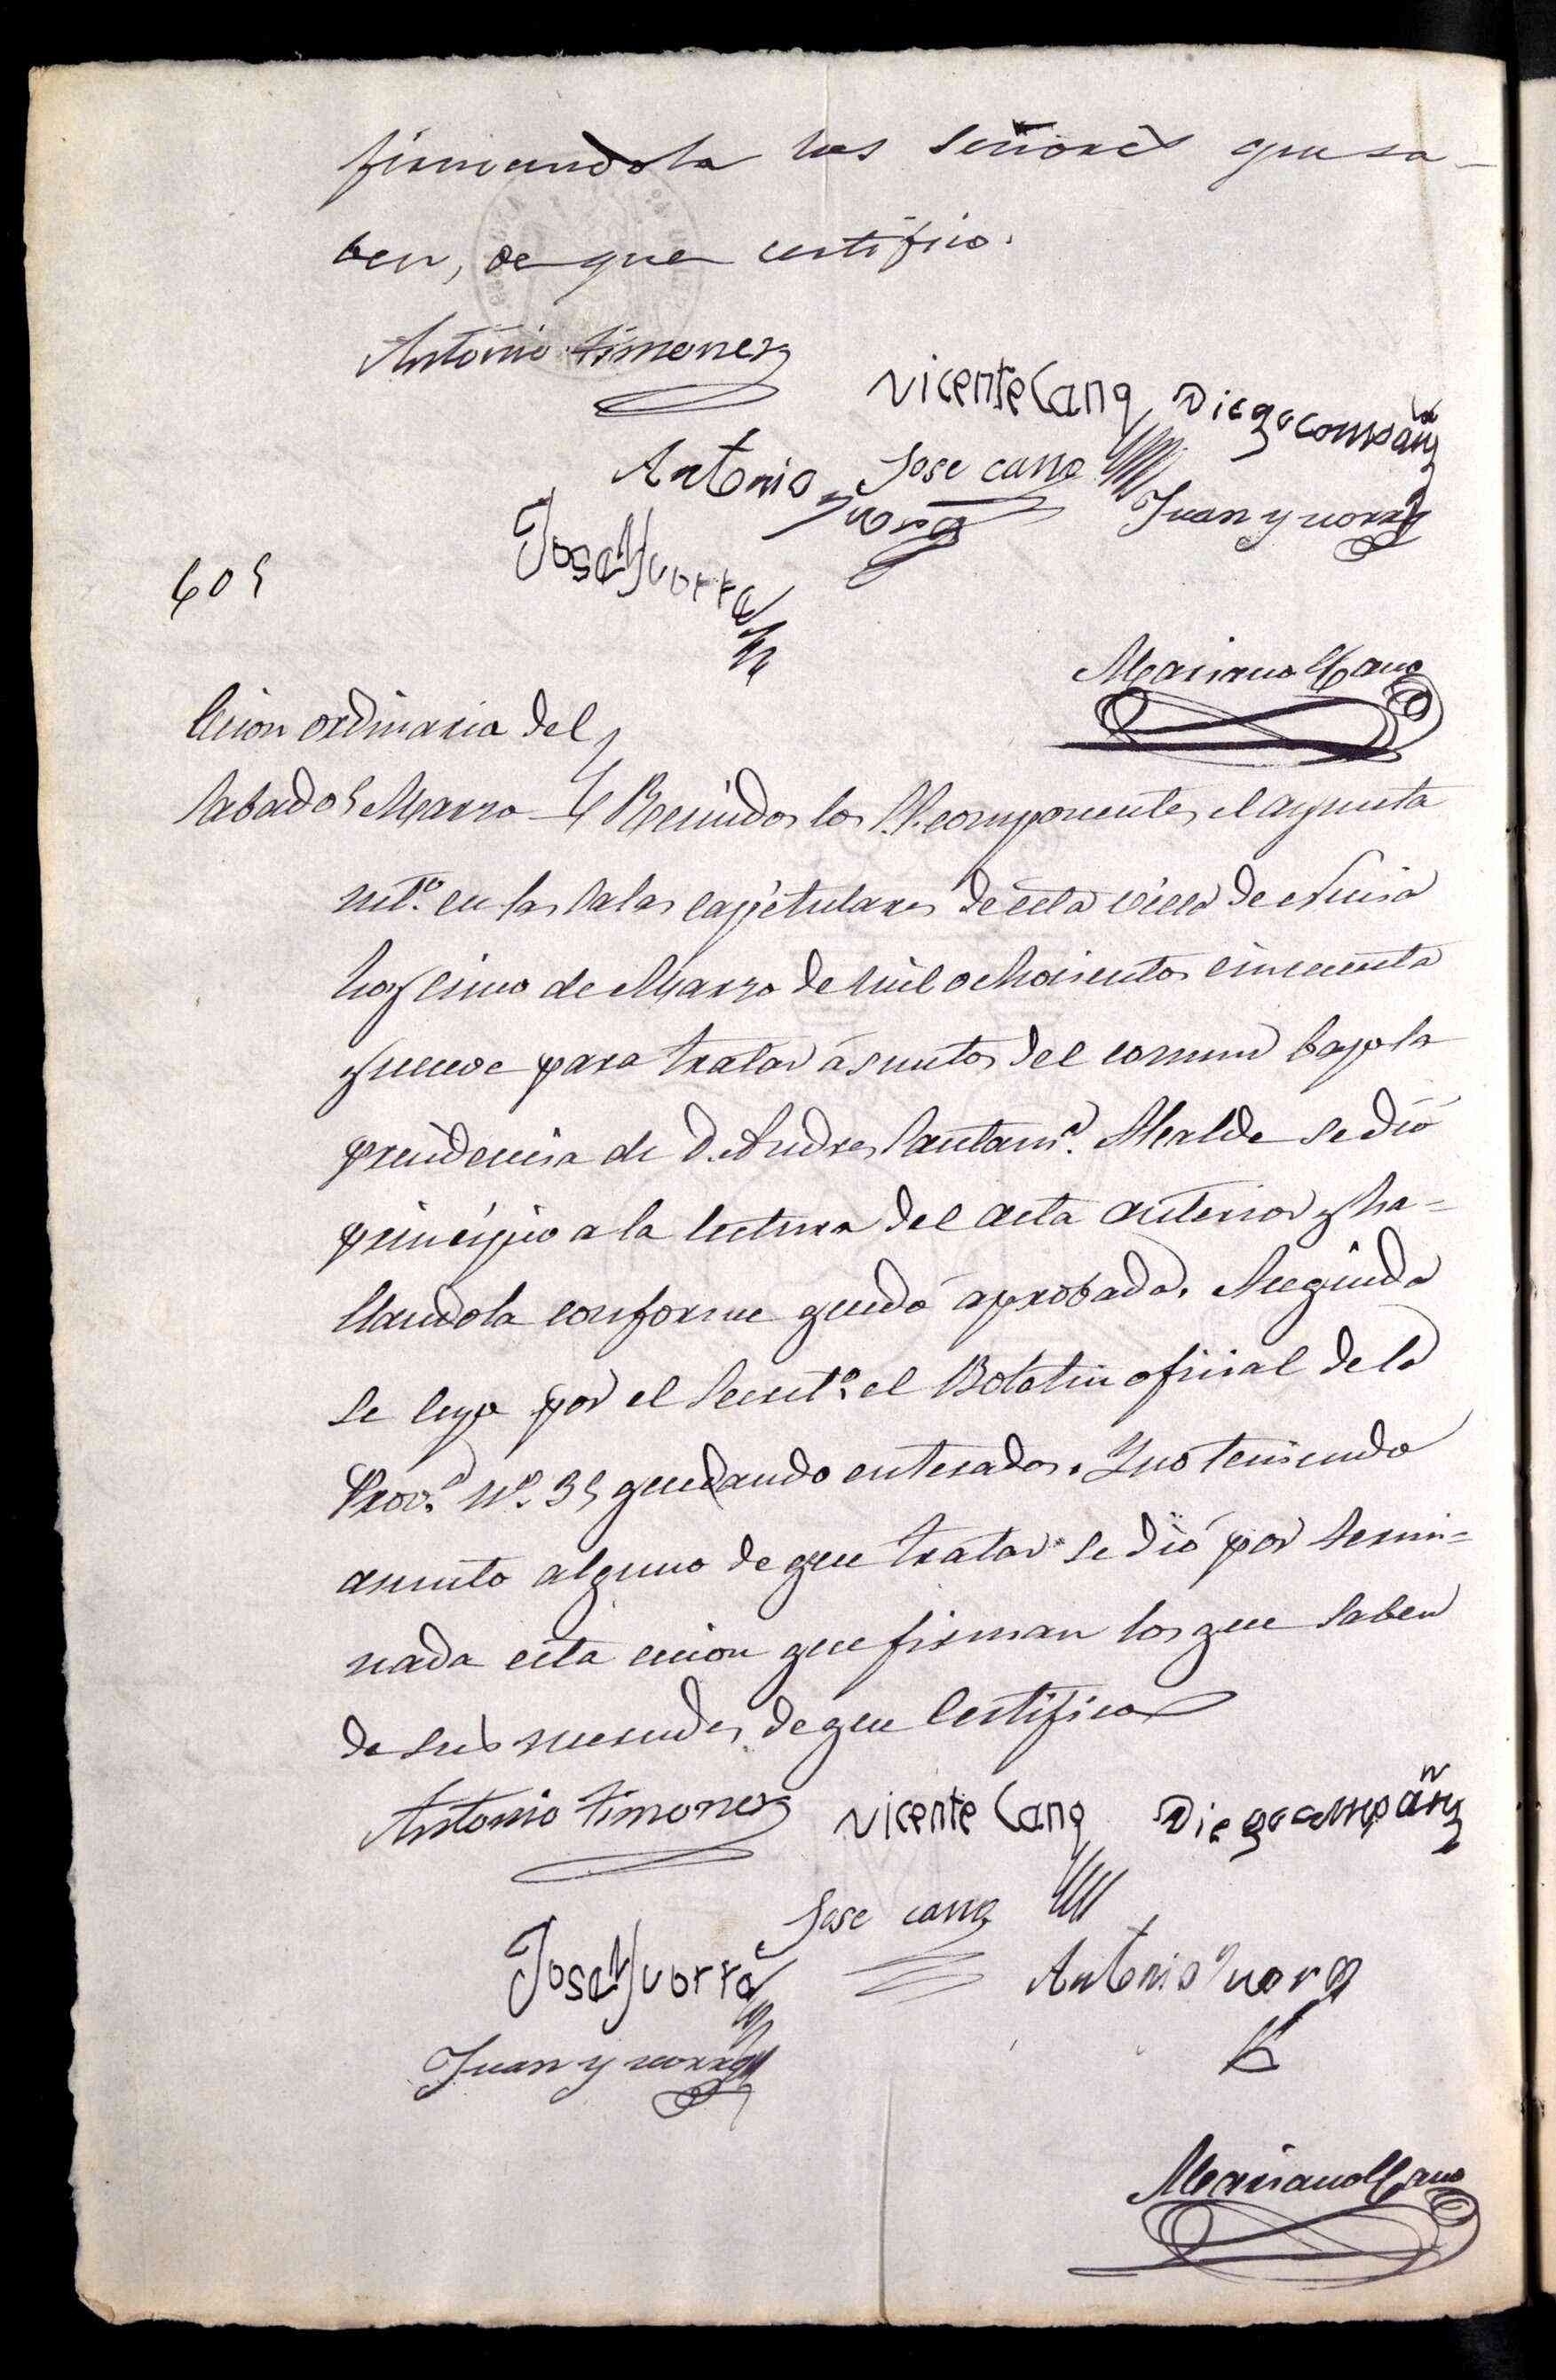 firmandola los Señores que sa-
ben, de que certifico.
Antonio Ximenez
Vicente Cano Diego Compañ
Antonio Yvorra Jose cano
Juan yvorra
Jose Yvorra
605
Mariano Cano
Cecion ordinaria del
Sabado 5 Marzo Reunidos los S.S. componentes el ayunta
mto. en las Salas capitulares de esta villa de
hoy cinco de Marzo de mil ochocientos cincuenta
y nueve para tratar asuntos del comun bajo la
precidencia de D. Andres Santam.a Alcalde se dió
principio a la lectura del acta anterior y ha=
llandola conforme quedó aprobada. Seguida
se leyo por el Secret.o el Boletin oficial de la
Prov.a N.o 35 quedando enterados. Y no teniendo
asunto alguno de que tratar se dió por termi=
nada esta cecion que firman los que saben
de sus mercedes de que Certifico
Antonio Ximenez Vicente Cano Diego compañ
Jose cano
Jose Yvorra Antonio Yvorra
Juan yvorra
Mariano Cano